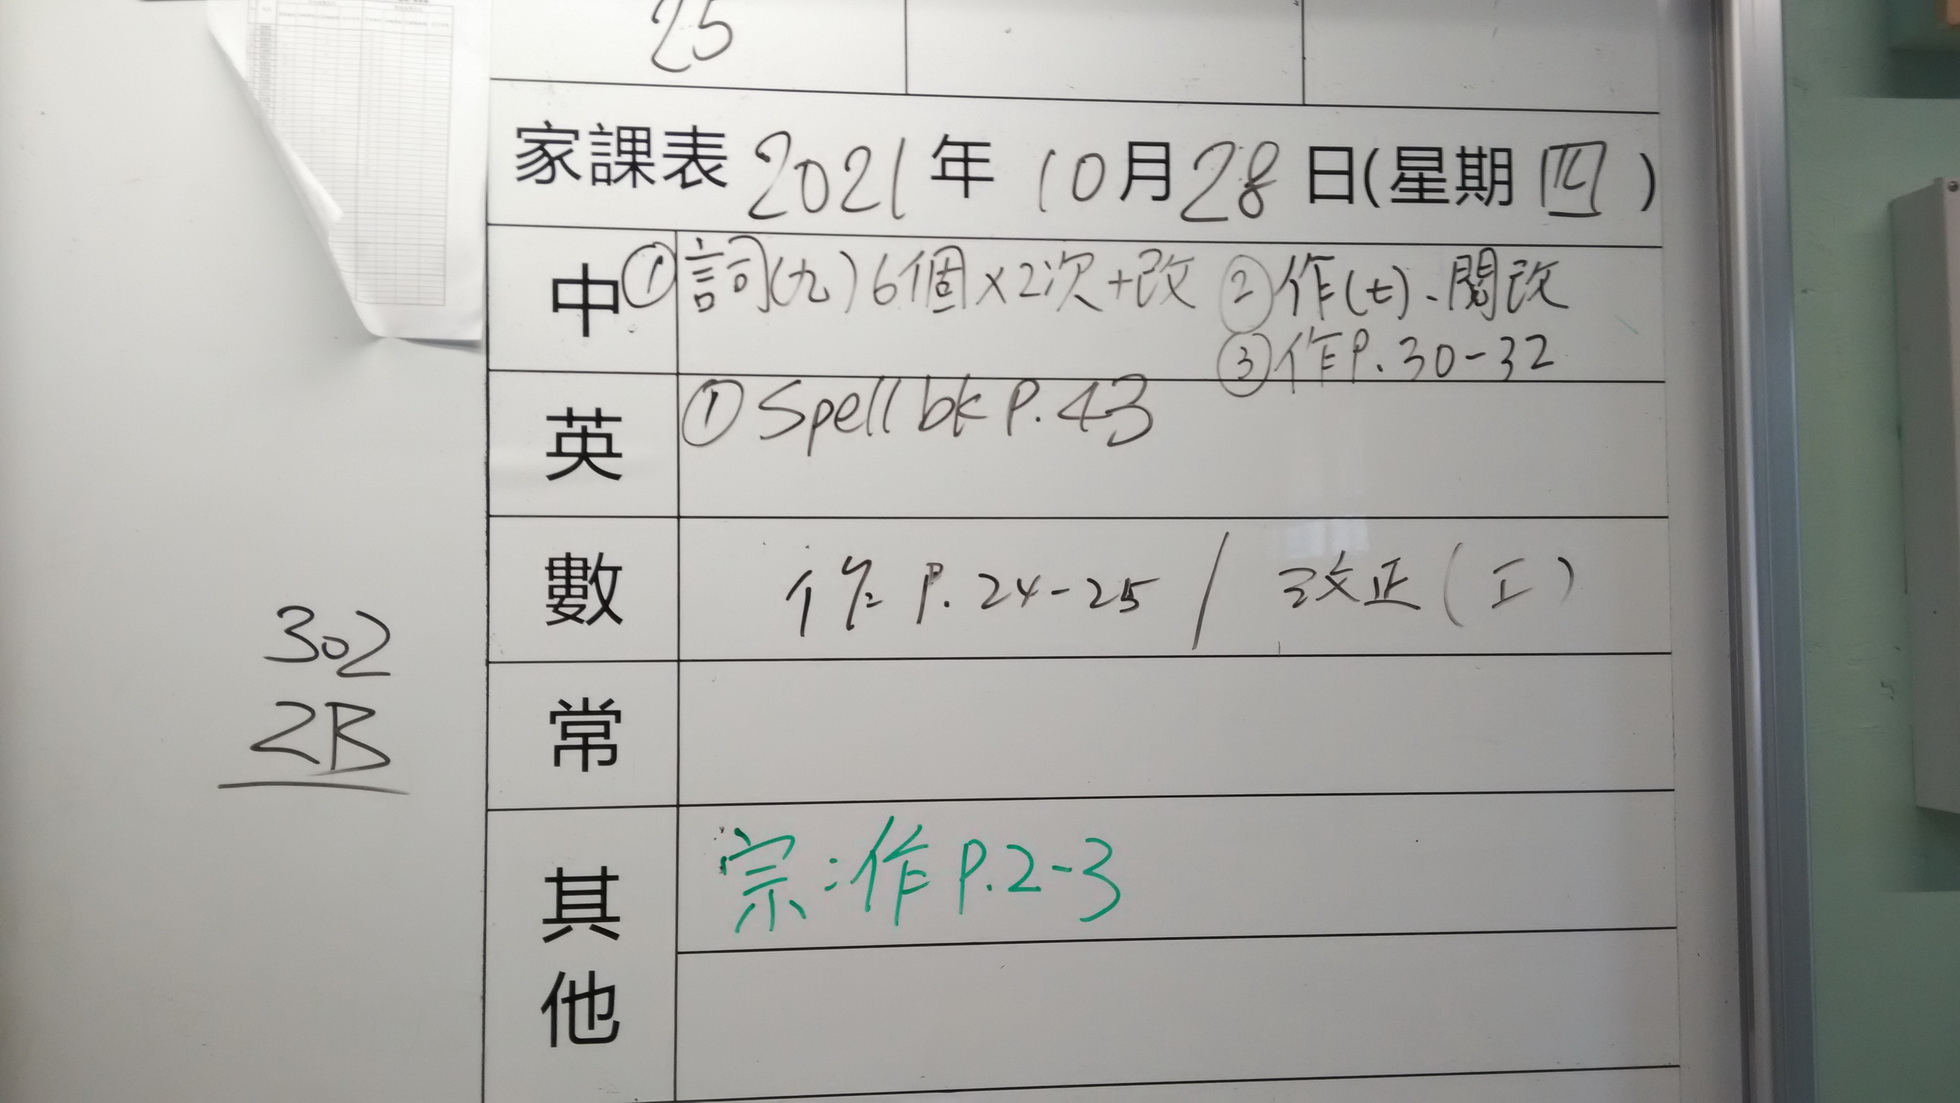 25
家課表 2021年 10月28日(星期四)
中 ①詞(九)6個×2次+改 ②作(七)、閱改
③作P.30-32
英 ①Spell bk P.43
數 作P.24-25 / 改正(工)
常
其他 宗:作P.2-3
302
2B